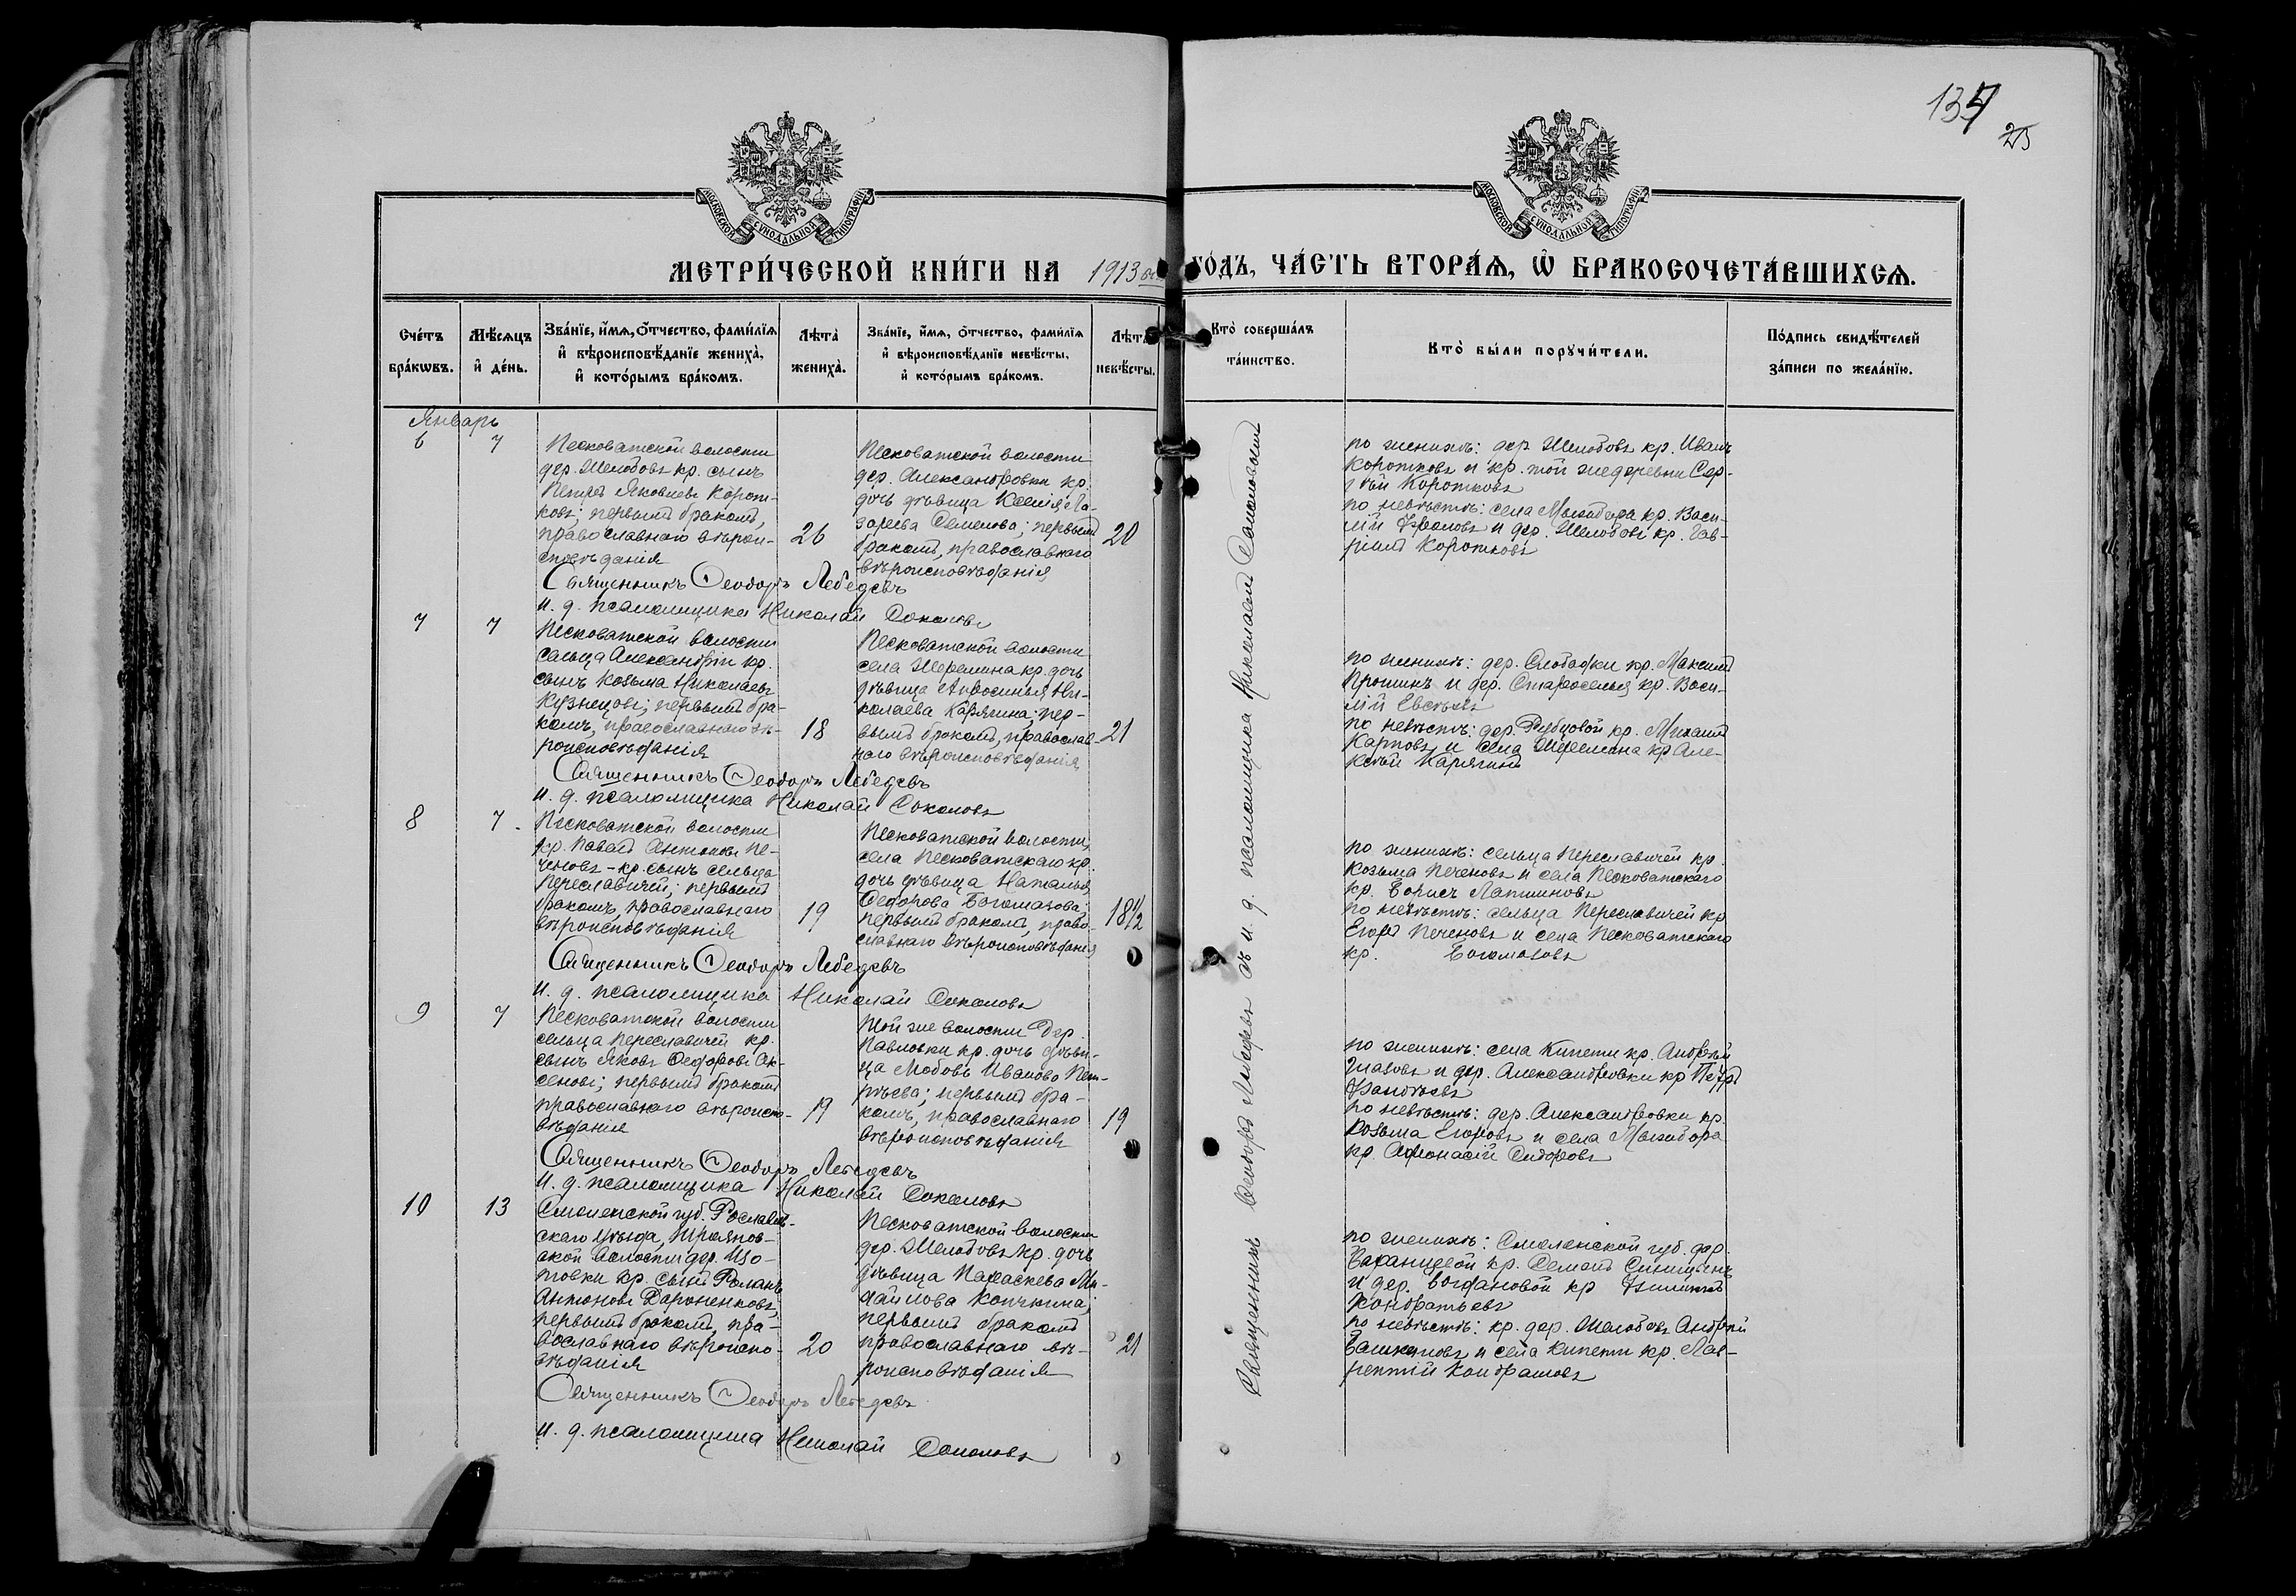 137
25
МОСКОВСКОЙ СѴНОДАЛЬНОЙ ТИПОГРАФІИ
МОСКОВСКОЙ СѴНОДАЛЬНОЙ ТИПОГРАФІИ
МЕТРИ́ЧЕСКОЙ КНИ́ГИ НА 1913 ГО́ДЪ, ЧА́СТЬ ВТОРА́Ѧ, Ѡ҆ БРАКОСОЧЕТА́ВШИХСѦ.
Сче́тъ бра́кѡвъ.
Мѣ́сѧцъ и҆ де́нь.
Зва́нїе, и҆́мѧ, ѻ҆́тчество, фами́лїѧ и҆ вѣроисповѣ́данїе жениха̀, и҆ кото́рымъ бра́комъ.
Лѣта̀ жениха̀.
Зва́нїе, и҆́мѧ, ѻ҆́тчество, фами́лїѧ и҆ вѣроисповѣ́данїе невѣ́сты, и҆ кото́рымъ бра́комъ.
Лѣта̀ невѣ́сты.
Кто̀ соверша́лъ та́инство.
Кто̀ бы́ли порꙋчи́тели.
По́дпись свидѣ́телей за́писи по жела́нїю.
Январь
6
7
Песковатской волости
дер. Шелобовъ кр. сынъ
Петръ Яковлевъ Корот-
ковъ; первымъ бракомъ,
православнаго вѣрои-
сповѣданія
26
Песковатской волости
дер. Александровки кр.
дочь дѣвица Ксенія Ла-
зарева Семенова; первымъ
бракомъ, православнаго
вѣроисповѣданія
20
по женихѣ: дер. Шелобовъ кр. Иванъ
Коротковъ и кр. той же деревни Сер-
гѣй Коротковъ
по невѣстѣ: села Мызабора кр. Васи-
лій Фроловъ и дер. Шелобовъ кр. Гав-
ріилъ Коротковъ
Священникъ Ѳеодоръ Лебедевъ
И. д. псаломщика Николай Соколовъ
7
7
Песковатской волости
сельца Александріи кр.
сынъ Козьма Николаевъ
Кузнецовъ; первымъ бра-
комъ, православнаго вѣ-
роисповѣданія
18
Песковатской волости
села Шеремина кр. дочь
дѣвица Ефросинья Ни-
колаева Карягина; пер-
вымъ бракомъ, православ-
наго вѣроисповѣданія
21
по женихѣ: дер. Слободки кр. Максимъ
Прошинъ и дер. Староселья кр. Васи-
лій Евсѣевъ
по невѣстѣ: дер. Рубцовой кр. Михаилъ
Карповъ и села Шеремина кр. Але-
ксѣй Карягинъ
Священникъ Ѳеодоръ Лебедевъ
И. д. псаломщика Николай Соколовъ
8
7
Песковатской волости
кр. Павелъ Антоновъ Пе-
ченовъ - кр. сынъ сельца
Переславичей; первымъ
бракомъ, православнаго
вѣроисповѣданія
19
Песковатской волости,
села Песковатскаго кр.
дочь дѣвица Наталья
Ѳедорова Богомазова
первымъ бракомъ, право-
славнаго вѣроисповѣданія
18½
по женихѣ: сельца Переславичей кр.
Козьма Печеновъ и села Песковатскаго
кр. Борисъ Лапшиновъ
по невѣстѣ: сельца Переславичей кр.
Егоръ Печеновъ и села Песковатскаго
кр. Богомазовъ
Священникъ Ѳеодоръ Лебедевъ
И. д. псаломщика Николай Соколовъ
9
7
Песковатской волости
сельца Переславичей кр.
сынъ Яковъ Ѳедоровъ Ак-
сеновъ; первымъ бракомъ
православнаго вѣроиспо-
вѣданія
19
Той же волости дер.
Павловки кр. дочь дѣви-
ца Любовь Иванова
первымъ бра-
комъ, православнаго
вѣроисповѣданія
19
по женихѣ: села Кипети кр. Андрей
Глазовъ и дер. Александровки кр. Петръ
по невѣстѣ: дер. Александровки кр.
Козьма Егоровъ и села Мызабора
кр. Афонасій Сидоровъ
Священникъ Ѳеодоръ Лебедевъ
И. д. псаломщика Николай Соколовъ
10
13
Смоленской губ. Рославль-
скаго уѣзда, Трояновс-
кой волости дер. Изо-
товки кр. сынъ Романъ
Антоновъ Дароненковъ;
первымъ бракомъ, пра-
вославнаго вѣроиспо-
вѣданія
20
Песковатской волости
дер. Шелобовъ кр. дочь
дѣвица Параскева Ми-
хайлова Копчкина;
первымъ бракомъ
православнаго вѣ-
роисповѣданія
21
по женихѣ: Смоленской губ. дер.
кр. Семенъ Синицынъ
и дер. Богдановой кр. Филиппъ
Кондратьевъ
по невѣстѣ: кр. дер. Шелобовъ Андрей
Башкановъ и села Кипети кр. Лав-
рентій Кондрашовъ
Священникъ Ѳеодоръ Лебедевъ
И. д. псаломщика Николай Соколовъ
Священникъ Ѳеодоръ Лебедевъ съ и. д. псаломщика Николаемъ Соколовымъ